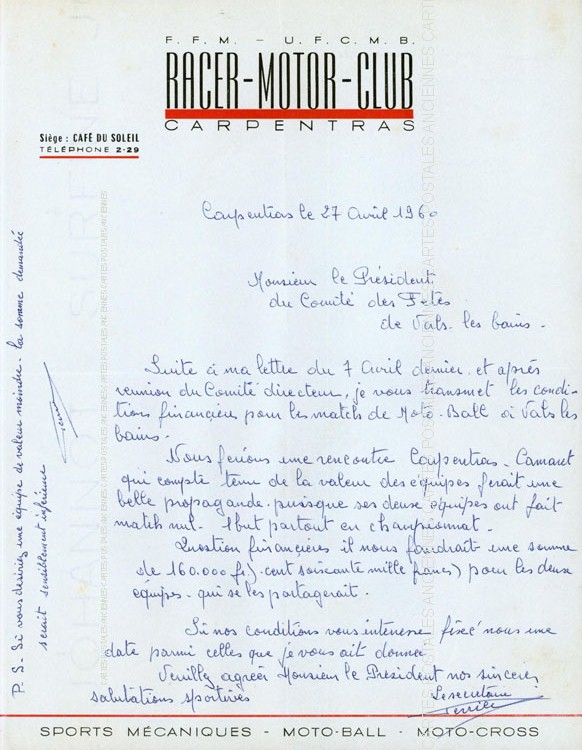 F.F.M. - U.F.C.M.B.
RACER-MOTOR-CLUB
CARPENTRAS
Siège : CAFÉ DU SOLEIL
TÉLÉPHONE 2-29
Carpentras le 27 Avril 1960
Monsieur le Président
du Comité des Fêtes
de Vals. les bains -
Suite à ma lettre du 7 Avril dernier. et après
reunion du Comité directeur, je vous transmet les condi-
tions financieres pour les match de Moto-Ball à Vals les
bains.
Nous ferions une rencontre Carpentras - Camaret
qui compte tenu de la valeur des équipes ferait une
belle propagande. puisque ses deux équipes ont fait
match nul - 1 but partout en championnat.
Question financières il nous faudrait une somme
de 160.000 fr.) cent soixante mille francs) pour les deux
équipes - qui se les partagerait.
Si nos conditions vous interesse fixé nous une
date parmi celles que je vous ait donner
Veuillez agréer Monsieur le Président nos sinceres
salutations sportives
Le secretaire
P.S. Si vous désiriez une équipe de valeur moindre - la somme demandée
serait sensiblement inférieure
SPORTS MÉCANIQUES - MOTO-BALL - MOTO-CROSS
CARTES POSTALES ANCIENNES